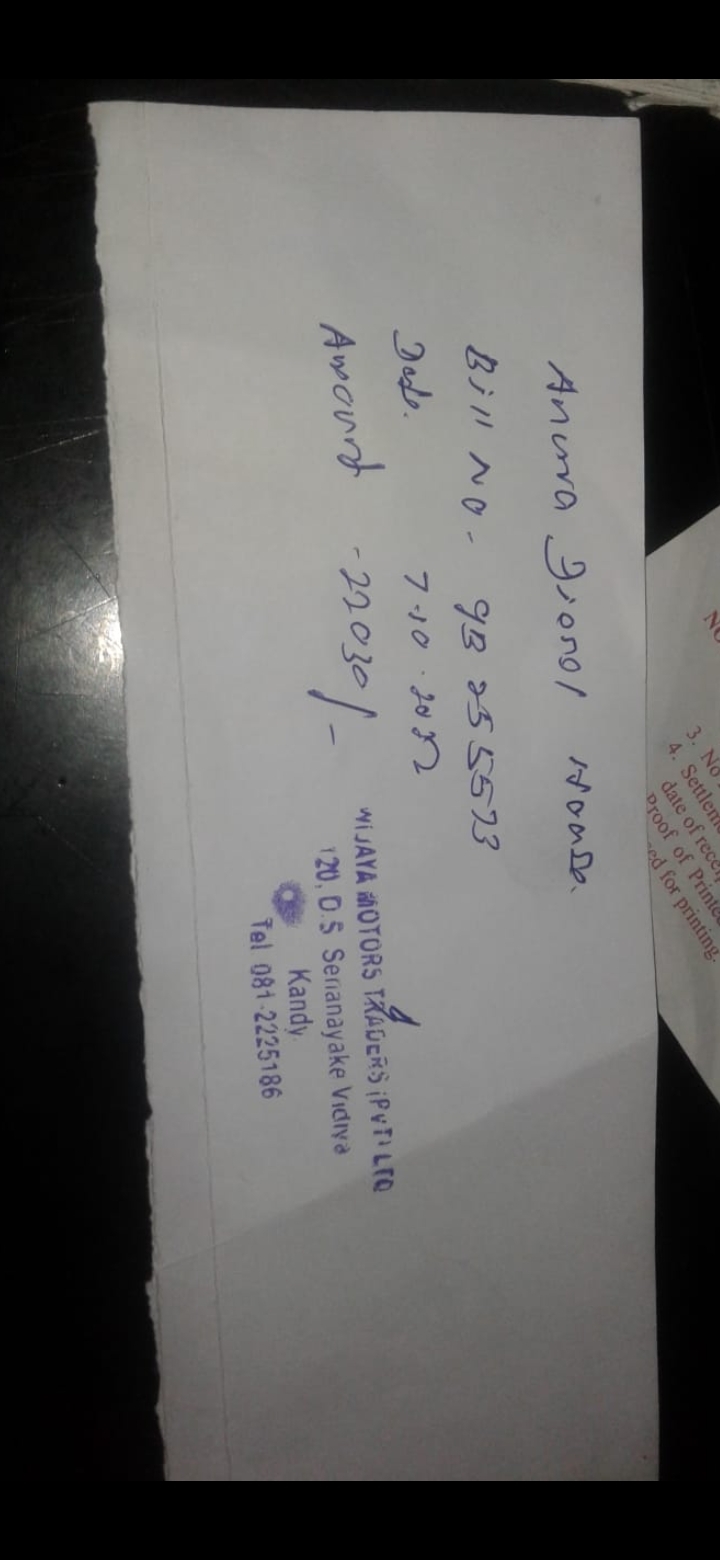 Anura Diesel House.
Bill No - 9B 255573
Date. 7.10.2022
Amount - 22030/-
WIJAYA MOTORS TRADERS (PVT) LTD
120, D.S Senanayake Vidiya
Kandy.
Tel 081-2225186
NO
3. No
4. Settlem
date of rece
Proof of Printe
ed for printing.